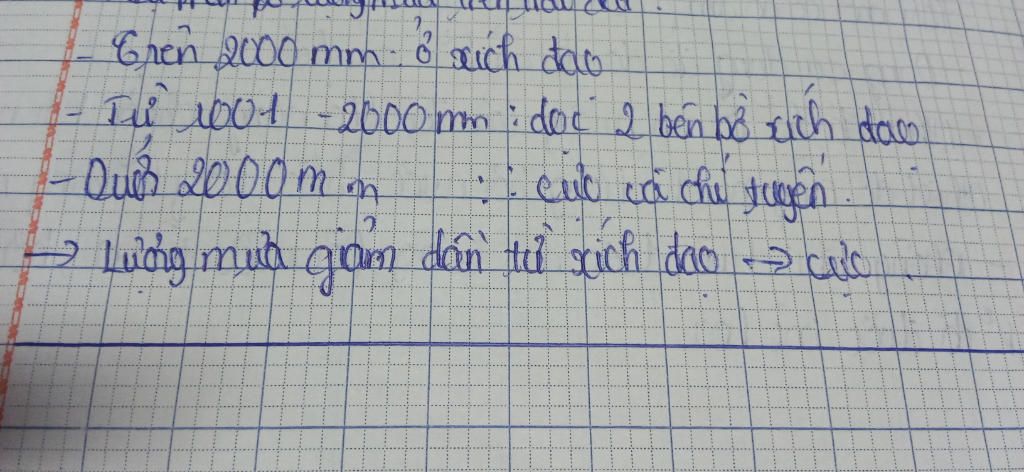 lượng mưa trên trái đất.
- Trên 2000 mm: ở xích đạo
- Từ 1001 - 2000 mm: dọc 2 bên bờ xích đạo
- Dưới 2000 m m : : cực và chí tuyến.
→ Lượng mưa giảm dần từ xích đạo → cực.